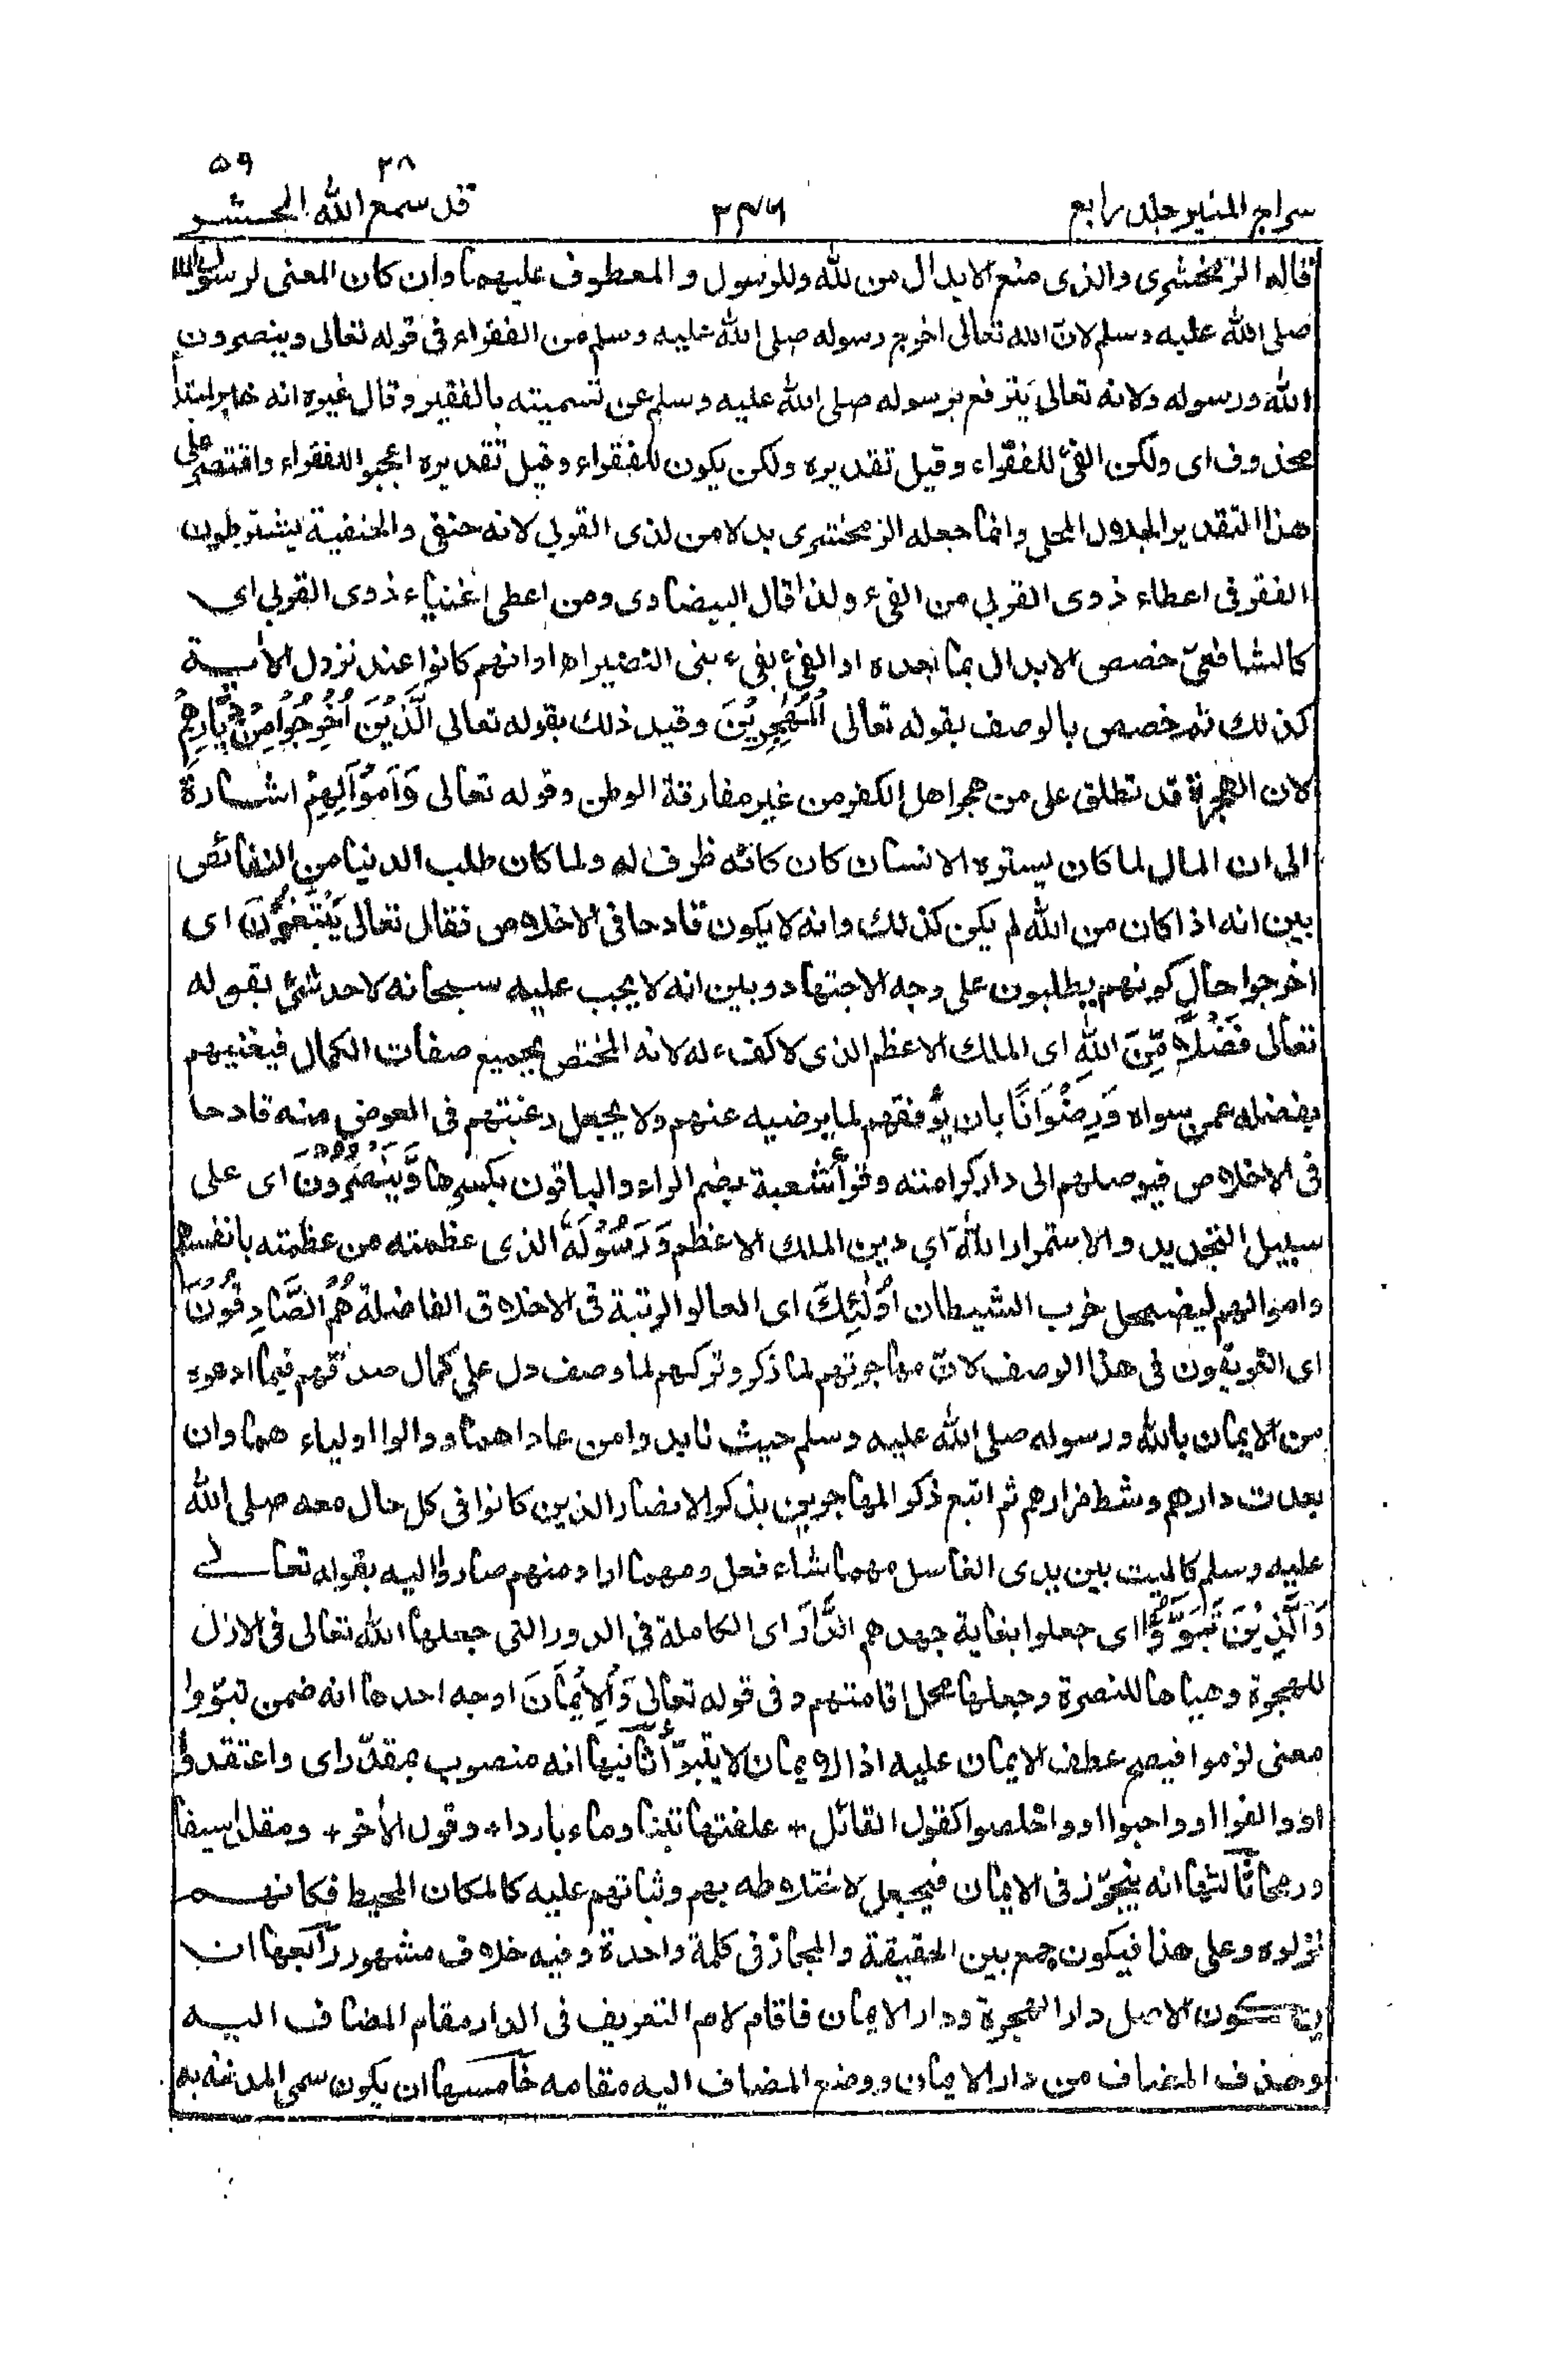 ٢٨ ٥٩
سراج المنير جلد رابع ٢٤٦ قد سمع الله الحشر
قاله الزمخشرى والذى منع الابدال من لله وللرسول والمعطوف عليهما وان كان المعنى لرسول الله
صلى الله عليه وسلم لانّ الله تعالى اخرج رسوله صلى الله عليه وسلم من الفقراء فى قوله تعالى وينصرون
الله ورسوله ولانه تعالى يترفع برسوله صلى الله عليه وسلم عن تسميته بالفقير وقال غيره انه خبر لمبتدأ
محذوف اى ولكن الفئ للفقراء وقيل تقديره ولكن يكون للفقراء وقيل تقديره اعجبوا للفقراء واقتصر على
هذا التقدير الجلال المحلى وانما جعله الزمخشرى بدلا من لذى القربى لانه حنفى والحنفية يشترطون
الفقر فى اعطاء ذوى القربى من الفىء ولذا قال البيضاوى ومن اعطى اغنياء ذوى القربى اى
كالشافعىّ خصص الابدال بما بعده او الفئ بفىء بنى النضير اه او انهم كانوا عند نزول الأيــة
كذلك ثم خصص بالوصف بقوله تعالى الْمُهٰجِرِيْنَ وقيد ذلك بقوله تعالى الَّذِيْنَ اُخْرِجُوْا مِنْ دِيَارِهِمْ
لان الهجرة قد تطلق على من هجر اهل الكفر من غير مفارقة الوطن وقوله تعالى وَاَمْوَالِهِمْ اشــارة
الى ان المال لما كان يستره الانسان كان كانّه ظرف له ولما كان طلب الدنيا من النقائص
بين انه اذا كان من الله لم يكن كذلك وانه لا يكون قادحا فى الاخلاص فقال تعالى يَبْتَغُوْنَ اى
اخرجوا حال كونهم يطلبون على وجه الاجتهاد وبين انه لا يجب عليه سبحانه لاحد شئ بقوله
تعالى فَضْلًا مِّنَ اللهِ اى الملك الاعظم الذى لا كفء له لانه المختص بجميع صفات الكمال فيغنيهم
بفضله عمن سواه وَرِضْوَانًا بان يوفقهم لما يرضيه عنهم ولا يجعل رغبتهم فى العوض منه قادحا
فى الاخلاص فيوصلهم الى دار كرامته وقرأ شعبة بضم الراء والباقون بكسرها وَّيَنْصُرُوْنَ اى على
سبيل التجديد والاستمرار اللهَ اى دين الملك الاعظم وَرَسُوْلَهٗ الذى عظمته من عظمته بانفسهم
واموالهم ليضمحل حزب الشيطان اُولٰئِكَ اى العالو الرتبة فى الاخلاق الفاضلة هُمُ الصَّادِقُوْنَ
اى العريقون فى هذا الوصف لانّ مهاجرتهم لما ذكر وتركهم لما وصف دل على كمال صدقهم فيما ادعوه
من الايمان بالله ورسوله صلى الله عليه وسلم حيث نابدوا من عاداهما ووالوا اولياء هما وان
بعدت دارهم وشط مزارهم ثم اتبع ذكر المهاجرين بذكر الانصار الذين كانوا فى كل حال معه صلى الله
عليه وسلم كالميت بين يدى الغاسل مهما شاء فعل ومهما اراد منهم صاروا اليه بقوله تعالــى
وَالَّذِيْنَ تَبَوَّؤُا اى جعلوا بغاية جهدهم الدَّارَ اى الكاملة فى الدور التى جعلها الله تعالى فى الازل
للهجرة وهياها للنصرة وجعلها محل اقامتهم وفى قوله تعالى وَالْاِيْمَانَ اوجه احدها انه ضمن تبوّؤا
معنى لزموا فيصح عطف الايمان عليه اذ الايمان لا يتبوّأ ثانيها انه منصوب بمقدّر اى واعتقدوا
او والفوا او واحبوا او واخلصوا كقول القائل + علفتها تبنا وماء باردا + وقول الأخر + ومقلدا سيفا
ورمحا ثالثها انه يتجوّز فى الايمان فيجعل لاختلاطه بهم وثباتهم عليه كالمكان المحيط فكانهــم
نزلوه وعلى هذا فيكون جمع بين الحقيقة والمجاز فى كلمة واحدة وفيه خلاف مشهور رابعها ان
يكون الاصل دار الهجرة ودار الايمان فاقام لام التعريف فى الدار مقام المضاف اليــه
وحذف المضاف من دار الايمان ووضع المضاف اليه مقامه خامسها ان يكون سمى المدينة به